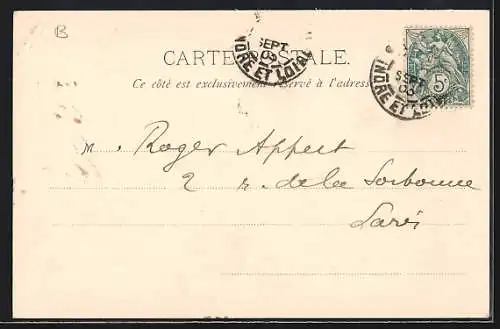 B
CARTE POSTALE.
Ce côté est exclusivement réservé à l'adresse
SEPT
INDRE ET LOIRE
5c
SEPT
INDRE ET LOIRE
M. Roger Appert
2 r. de la Sorbonne
Paris